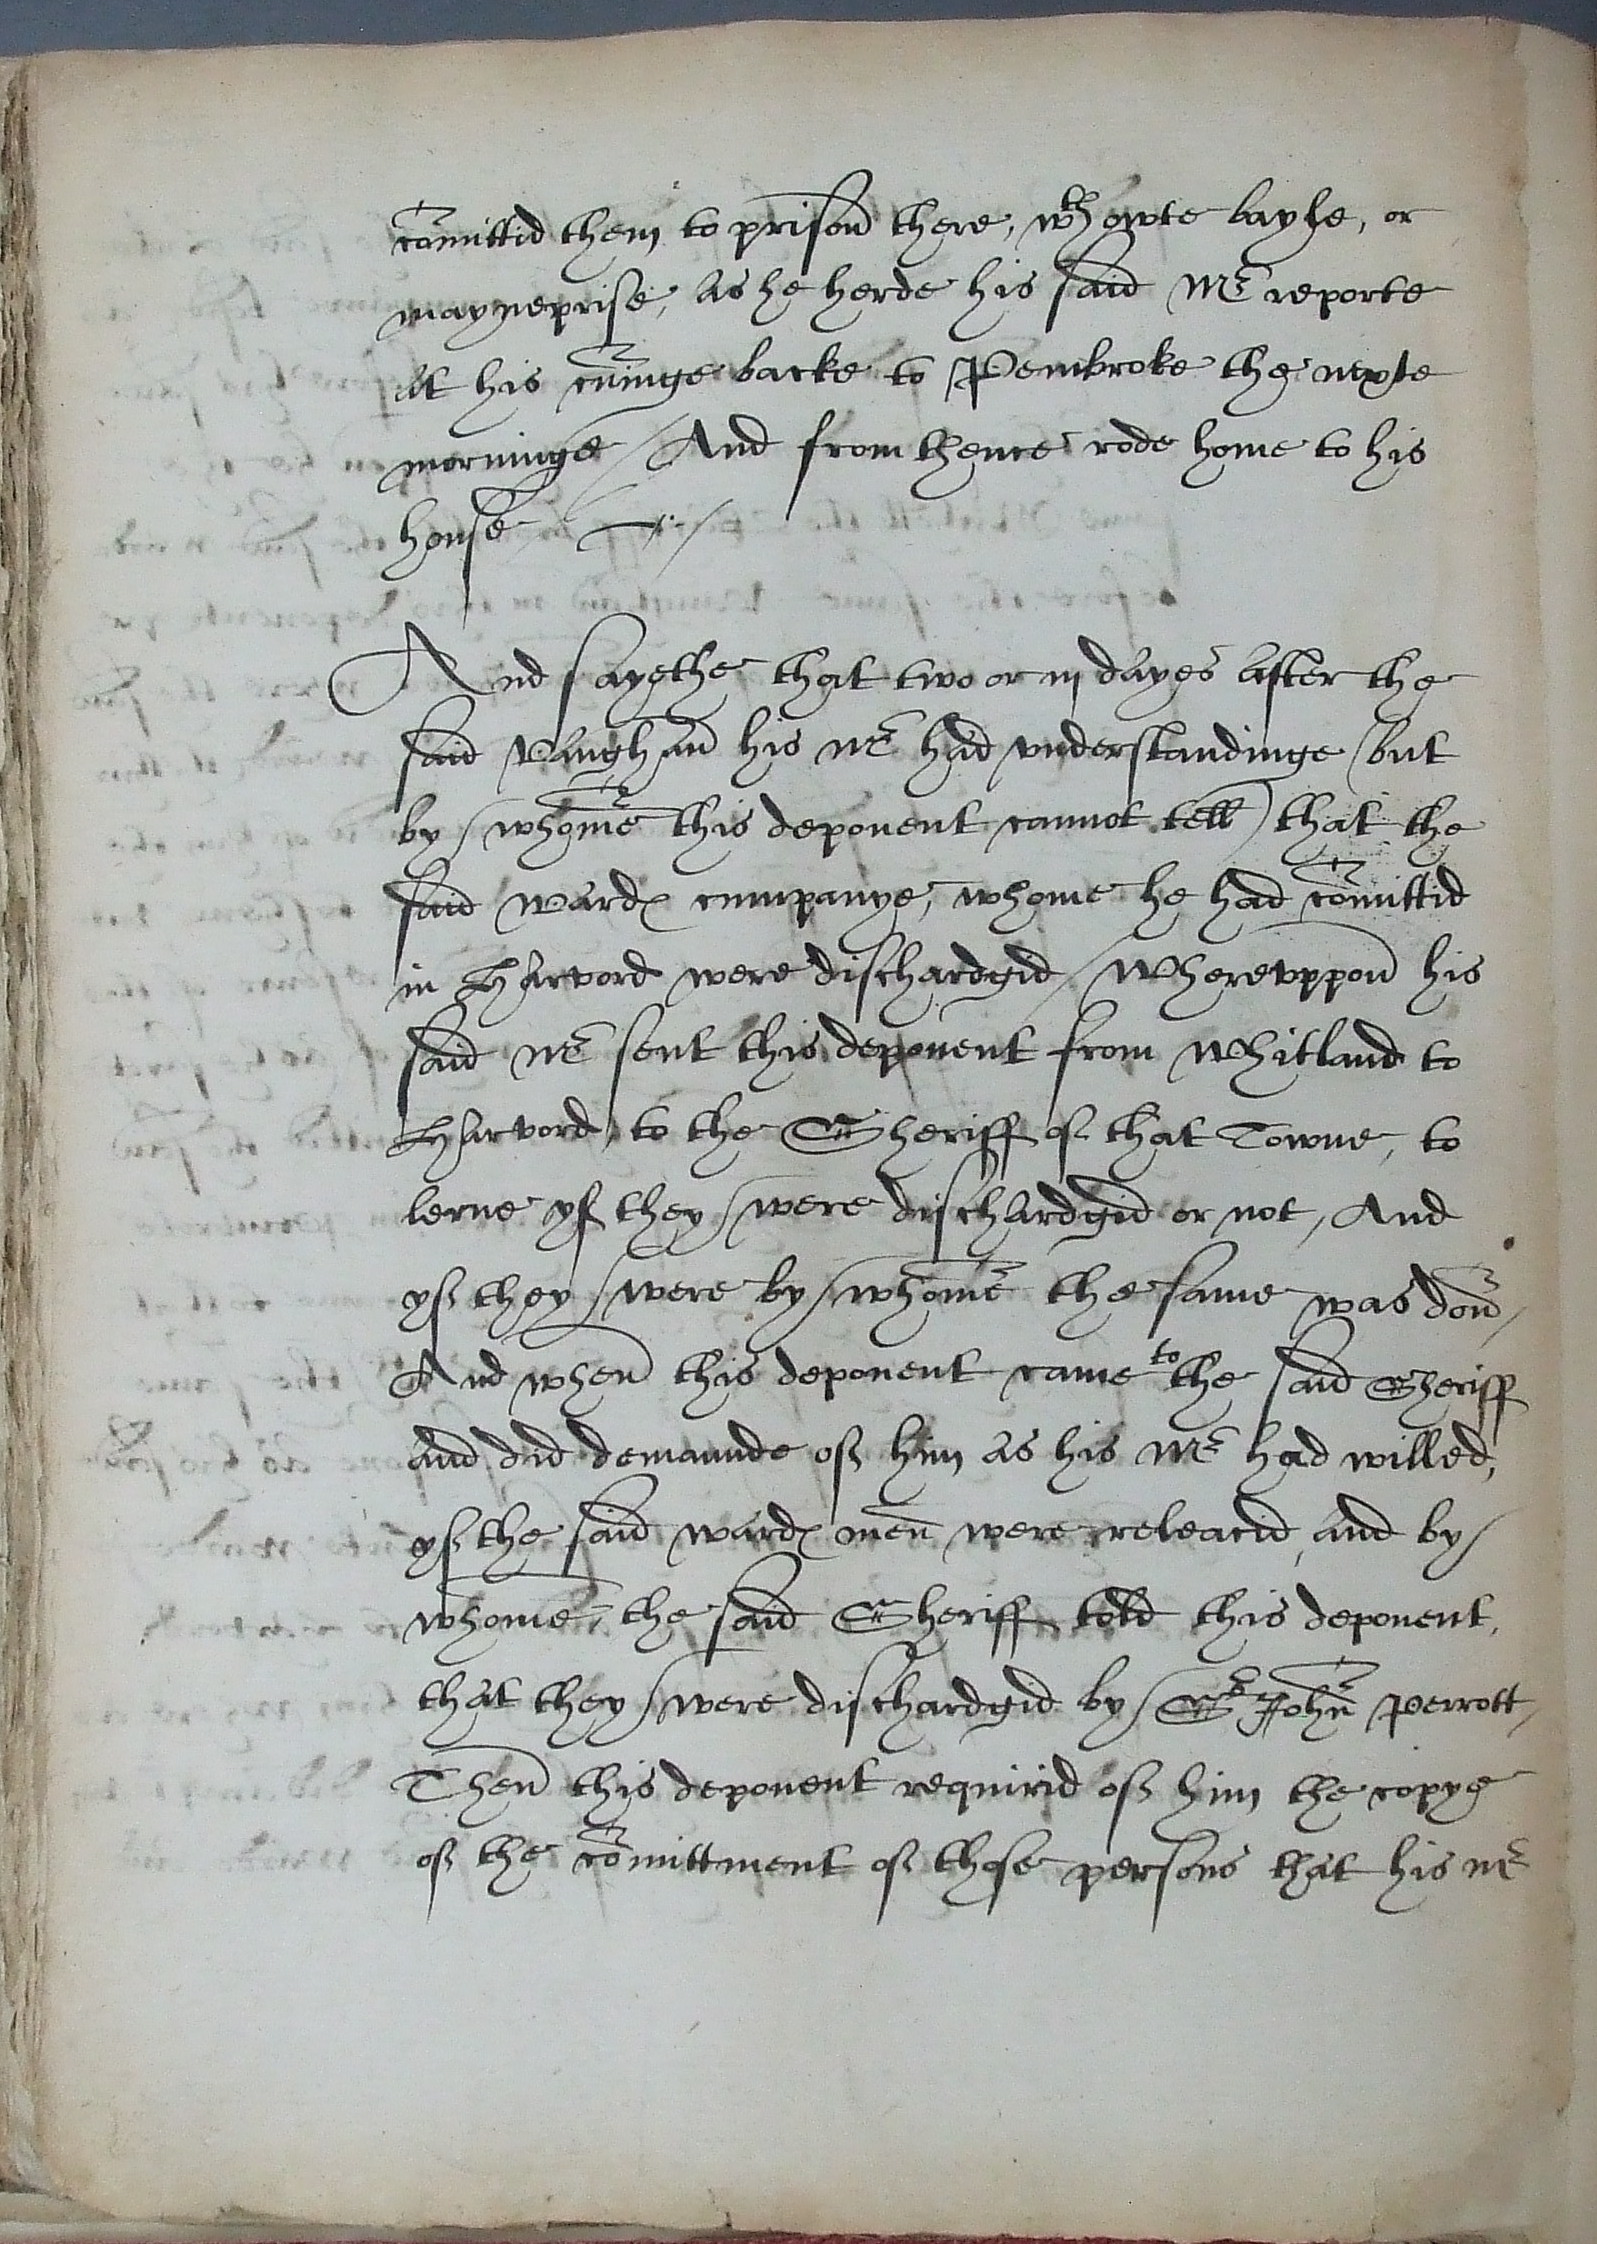 com̄ittid them to prison there, wth owte bayle, or
mayneprise, as he herde his said Mr reporte
at his cūinge backe to Pembroke the nexte
morninge / And from thence rode home to his
house
And sayethe that two or iij dayes after the
said Vaughan his Mr had vnderstandinge (but
by whome this deponent cannot tell) that the
said wardes cumpanye, whome he had com̄ittid
in Harford were dischardgid / Wherevppon his
said Mr sent this deponent from Whitland to
Harford, to the Sheriff of that Towne, to
lerne yf they were dischardgid or not, And
yf they were by whome the same was don /
And when this deponent came to the said Sheriff
and did demaunde of him as his Mr had willed,
yf the said wardes men were releacid, and by
whome, the said Sheriff told this deponent,
that they were dischardgid by Sr John Perrott /
Then this deponent requirid of him the copye
of the com̄ittment of those persons that his Mr